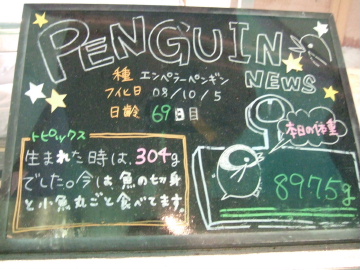 PENGUIN
NEWS
種 エンペラーペンギン
フ化日 08/10/5
日齢 69日目
トピックス
生まれた時は、304g
でした。今は魚の切身
と小魚丸ごと食べてます
本日の体重
8975g